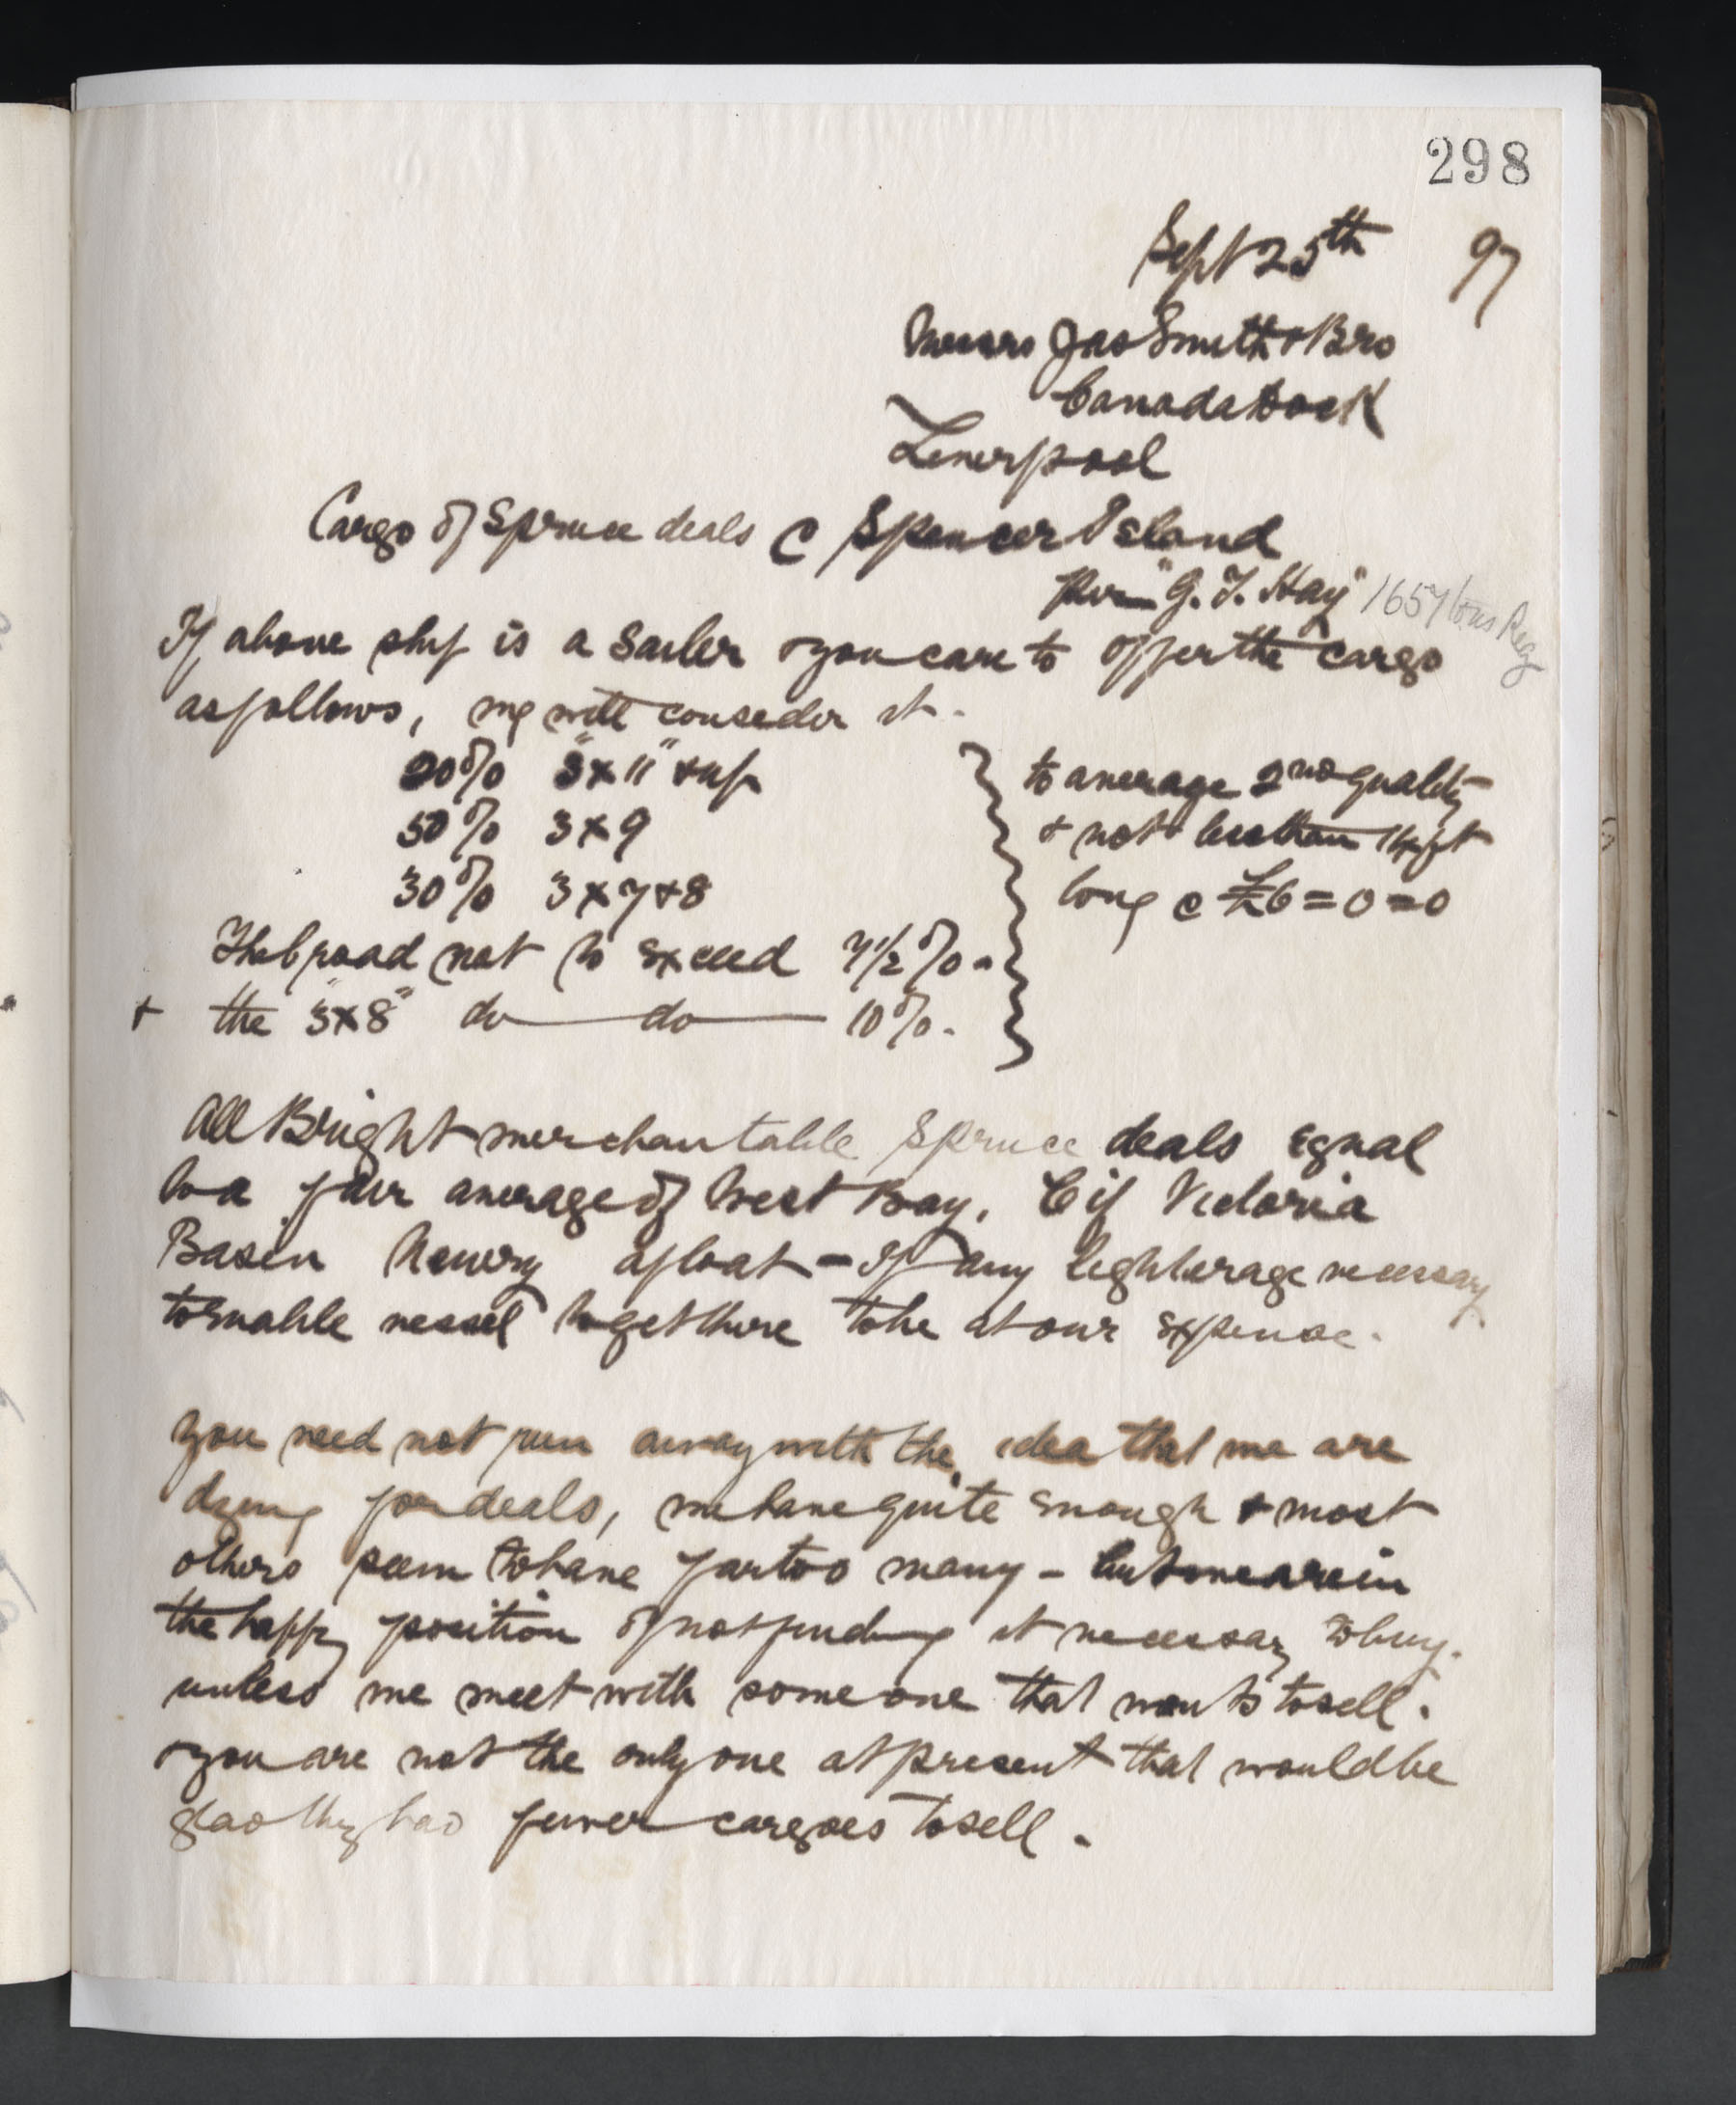 298
Sept 25th 97
Messrs Jas Smith & Bro
Canada Dock
Liverpool
Cargo of Spruce deals @ Spencer Island
per "G. T. Hay" 1657 tons Reg
If above ship is a Sailer & you care to offer the cargo
as follows, we will consider it.
20% 3 x 11" & up
50% 3 x 9
30% 3 x 7 & 8
to average 2nd quality
& not less than 14 ft
long @ £6=0=0
The broad not to exceed 7 1/2 %.
& the "3 x 8" do do 10%.
All Bright merchantable Spruce deals equal
to a fair average of West Bay, Cif Victoria
Basin Newry afloat - If any lighterage necessary
to enable vessel to get there to be at our expense.
You need not run away with the idea that we are
dying for deals, we have quite enough & most
others seem to have far too many - but we are in
the happy position of not finding it necessary to buy.
unless we meet with some one that wants to sell.
& you are not the only one at present that would be
glad they had fewer cargoes to sell.